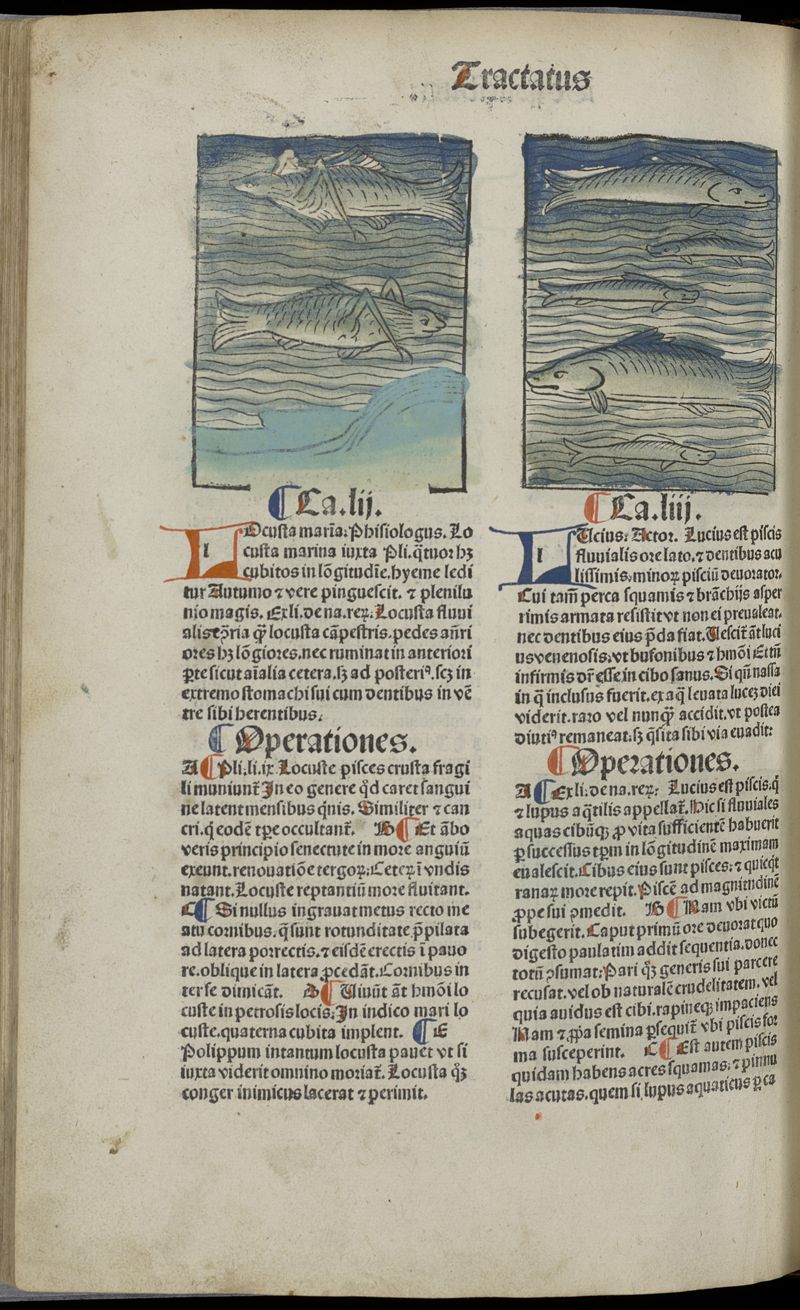 Tractatus
Ca.lij.
LOcusta maria: Phisiologus. Lo
custa marina iuxta Pli. q̃tuor hꝫ
cubitos in lõgitudĩe. hyeme ledi
tur Autumo ⁊ vere pinguescit. ⁊ plenilu
nio magis. Ex li. de na. reꝝ. Locusta fluui
alis ꝯ̃ria qꝫ̃ locusta cãpestris. pedes añri
ores hꝫ lõgiores. nec ruminat in anteriori
ꝑte sicut aĩalia cetera. sꝫ ad posteriꝰ. scꝫ in
extremo stomachi sui cum dentibus in vẽ
tre sibi herentibus.
Operationes.
A ¶ Pli. li. ix. Locuste pisces crusta fragi
li muniunt᷑ In eo genere qd̃ caret sangui
ne latent mensibus q̃nis. Similiter ⁊ can
cri. q̃ eodẽ tꝑe occultant᷑. B ¶ Et ãbo
veris principio senectute in more anguiũ
exeunt. renouatiõe tergoꝝ. Ceteꝝ ĩ vndis
natant. Locuste reptantiũ more fluitant.
C ¶ Si nullus ingrauat metus recto me
atu cornibus. q̃ sunt rotunditate p̃pilata
ad latera porrectis. ⁊ eisdẽ erectis ĩ pauo
re. oblique in latera ꝓcedãt. Cornibus in
ter se dimicãt. D ¶ Uiuũt ãt hmõi lo
custe in petrosis locis. In indico mari lo
custe. quaterna cubita implent. ¶ E
Polippum intantum locusta pauet vt si
iuxta viderit omnino moriat᷑. Locusta qꝫ
conger inimicus lacerat ⁊ perimit.
Ca.liij.
LUcius: Actor. Lucius est piscis
fluuialis ore lato. ⁊ dentibus acu
tissimis. minoꝝ pisciũ deuorator.
Cui tam̃ perca squamis ⁊ brãchijs asper
rimis armata resistit vt non ei preualeat.
nec dentibus eius p̃da fiat. Uescit᷑ ãt luci
us venenosis. vt bufonibus ⁊ hmõi Et tñ
infirmis dr̃ esse in cibo sanus. Si qñ nassa
in q̃ inclusus fuerit. ex aq̃ leuata lucẽ diei
viderit. raro vel nunqꝫ̃ accidit. vt postea
diutiꝰ remaneat. sꝫ q̃sita sibi via euadit:
Operationes.
A ¶ Ex li. de na. reꝝ: Lucius est piscis. q̃
⁊ lupus aq̃tilis appellat᷑. Hic si fluuiales
aquas cibũqꝫ ꝓ vita sufficientẽ habuerit
ꝑ successus tꝑm in lõgitudinẽ maximam
eualescit. Cibus eius sunt pisces. ⁊ quicqͥt
ranaꝝ more repit. Piscẽ ad magnitudinẽ
ꝓpe sui ꝯmedit. B ¶ Nam vbi victũ
subegerit. Caput primũ ore deuorat quo
digesto paulatim addit sequentia. donec
totũ ꝯsumat. Pari qꝫ generis sui parcere
recusat. vel ob naturalẽ crudelitatem. vel
quia auidus est cibi. rapineqꝫ impaciens
Nam ⁊ ꝓpa semina ꝑsequit᷑ vbi piscis for
ma susceperint. C ¶ Est autem piscis
quidam habens acres squamas. ⁊ pinnu
las acutas. quem si lupus aquaticus ꝑ ca